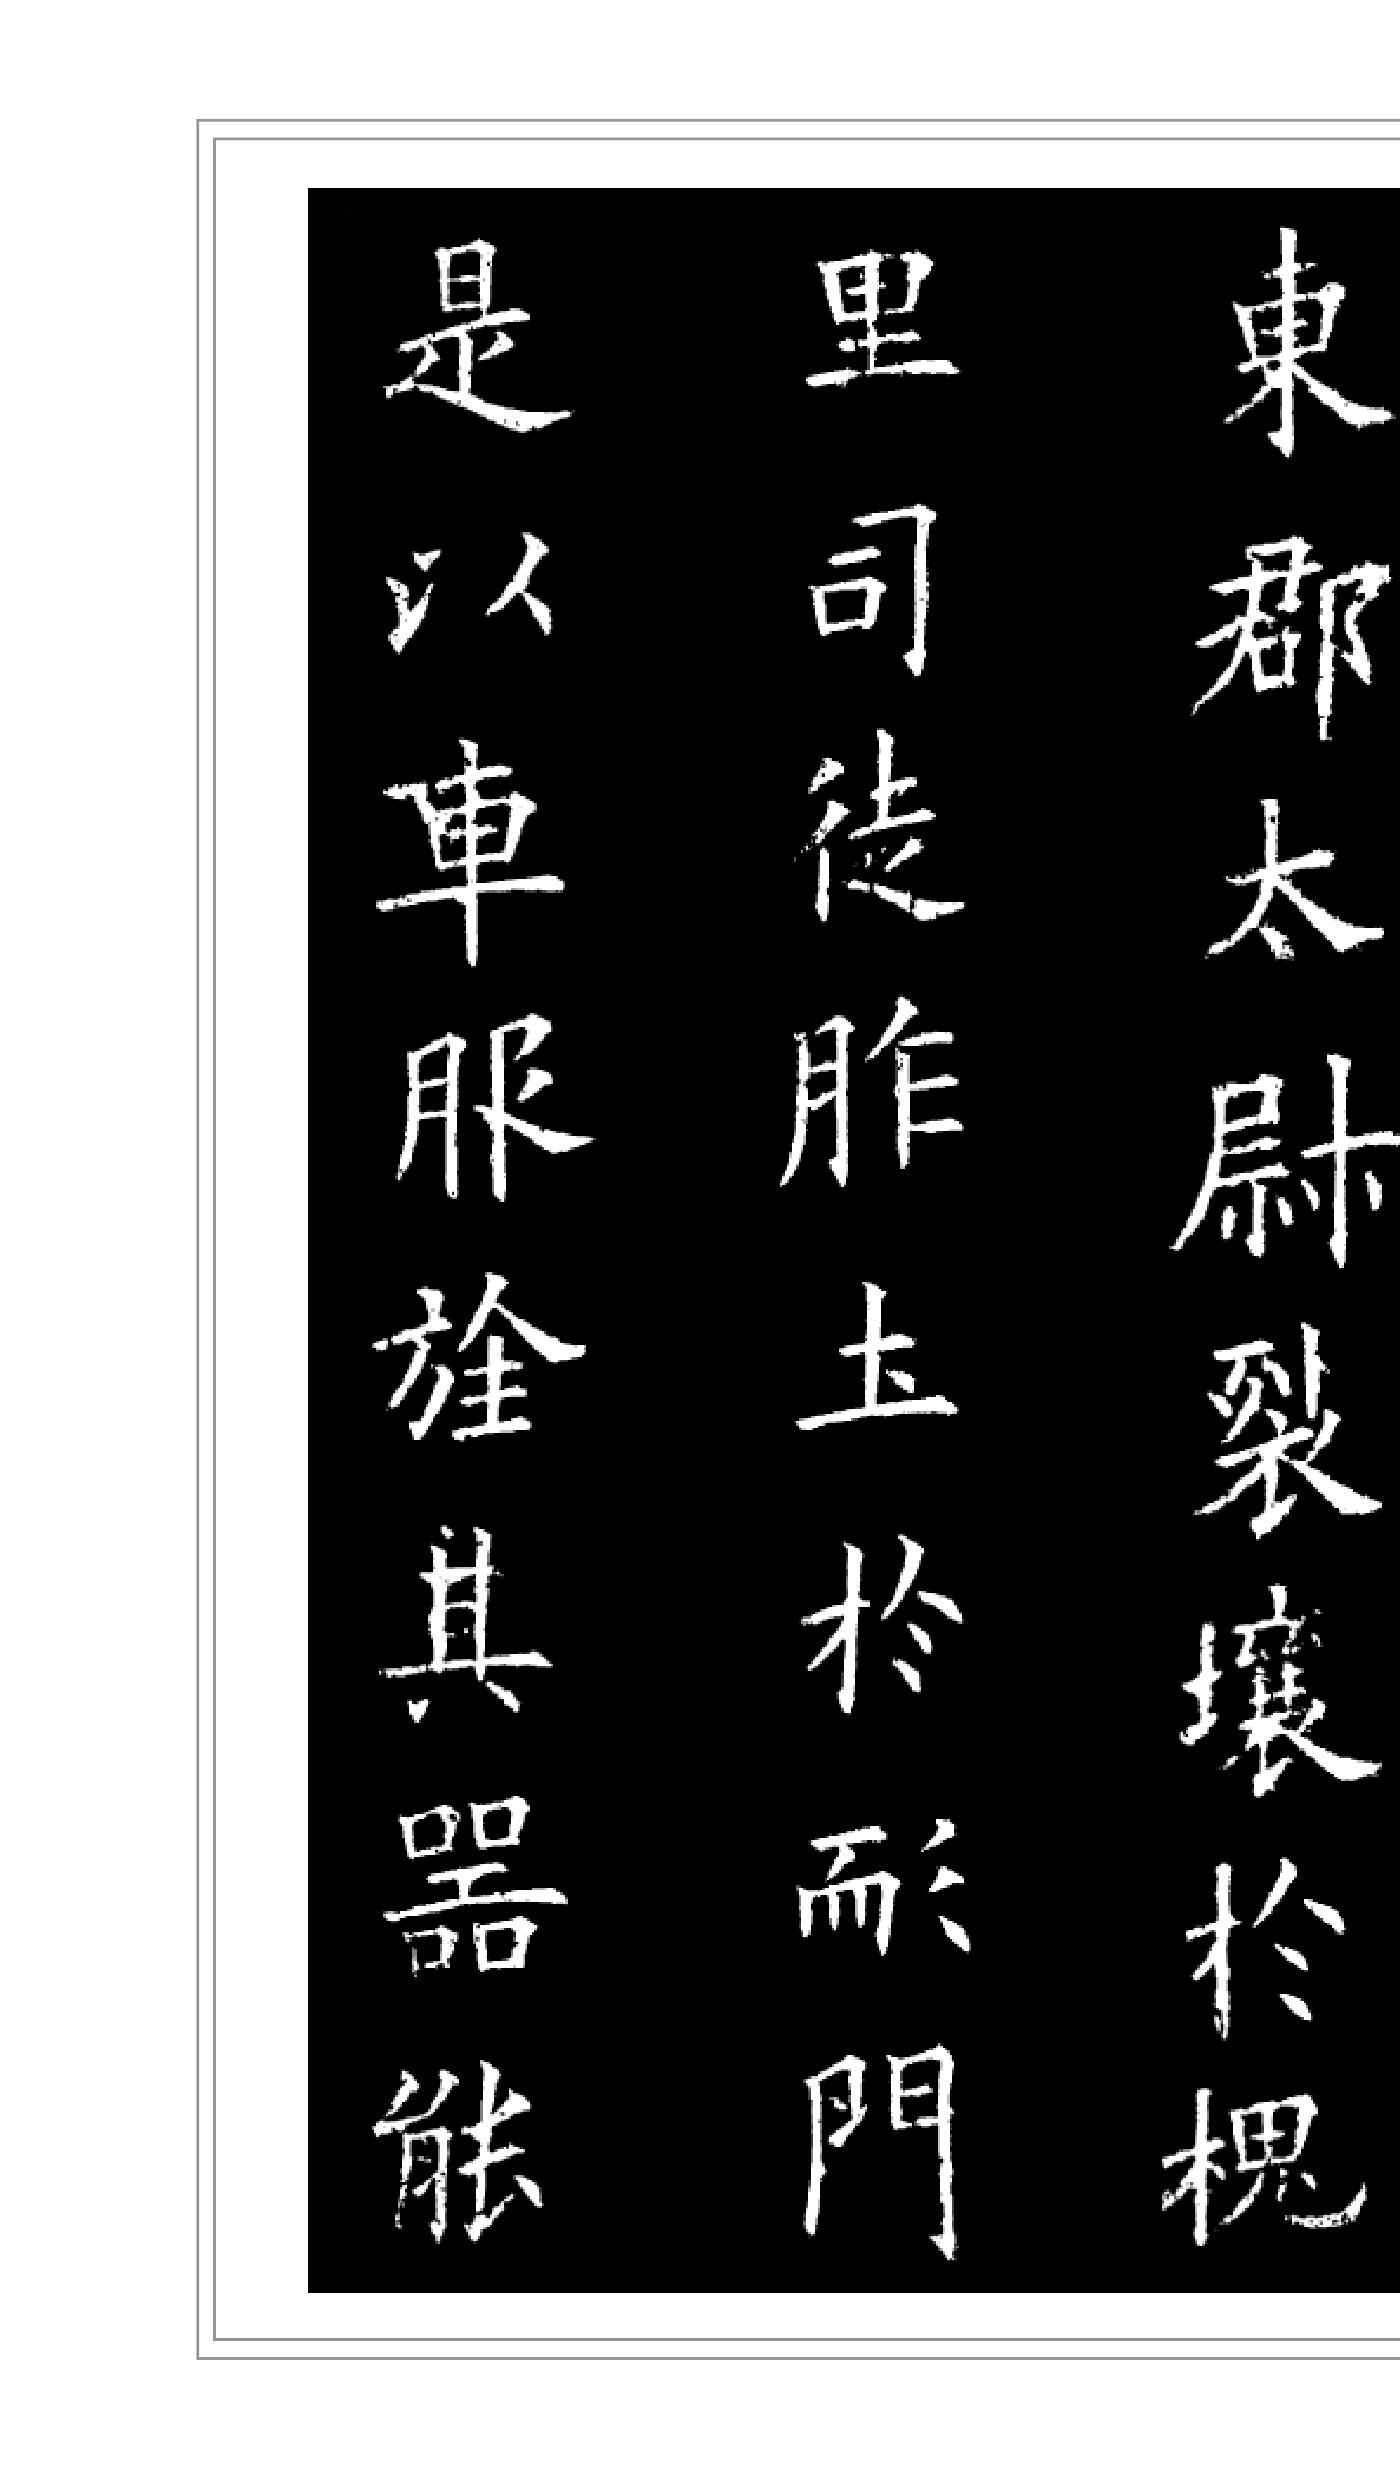 東郡太尉裂壤於槐
里司徒胙土於耏門
是以車服旌其器能